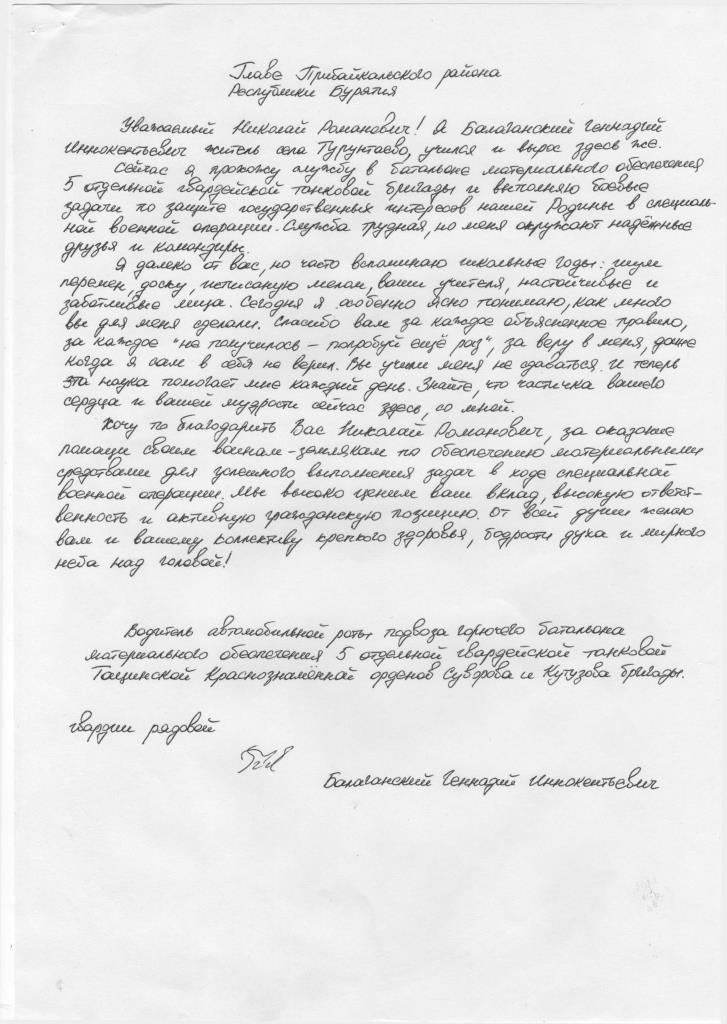 Главе Прибайкальского района
Республики Бурятия
Уважаемый Николай Романович! Я Балаганский Геннадий
Иннокентьевич житель села Турунтаево, учился и вырос здесь же.
Сейчас я прохожу службу в батальоне материального обеспечения
5 отдельной гвардейской танковой бригады и выполняю боевые
задачи по защите государственных интересов нашей Родины в специаль-
ной военной операции. Служба трудная, но меня окружают надёжные
друзья и командиры.
Я далеко от вас, но часто вспоминаю школьные годы: шум
перемен, доску, исписаную мелом, ваши учителя, настойчивые и
заботливые лица. Сегодня я особенно ясно понимаю, как много
вы для меня сделали. Спасибо вам за каждое объясненное правило,
за каждое "не получилось – попробуй ещё раз", за веру в меня, даже
когда я сам в себя не верил. Вы учили меня не сдаваться. И теперь
эта наука помогает мне каждый день. Знайте, что частичка вашего
сердца и вашей мудрости сейчас здесь, со мной.
Хочу по благодарить Вас Николай Романович, за оказание
помощи своим воинам-землякам по обеспечению материальными
средствами для успешного выполнения задач в ходе специальной
военной операции. Мы высоко ценим ваш вклад, высокую ответст-
венность и активную гражданскую позицию. От всей души желаю
вам и вашему коллективу крепкого здоровья, бодрости духа и мирного
неба над головой!
Водитель автомобильной роты подвоза горючего батальона
материального обеспечения 5 отдельной гвардейской танковой
Тацинской Краснознамённой орденов Суворова и Кутузова бригады.
гвардии рядовой
Балаганский Геннадий Иннокентьевич